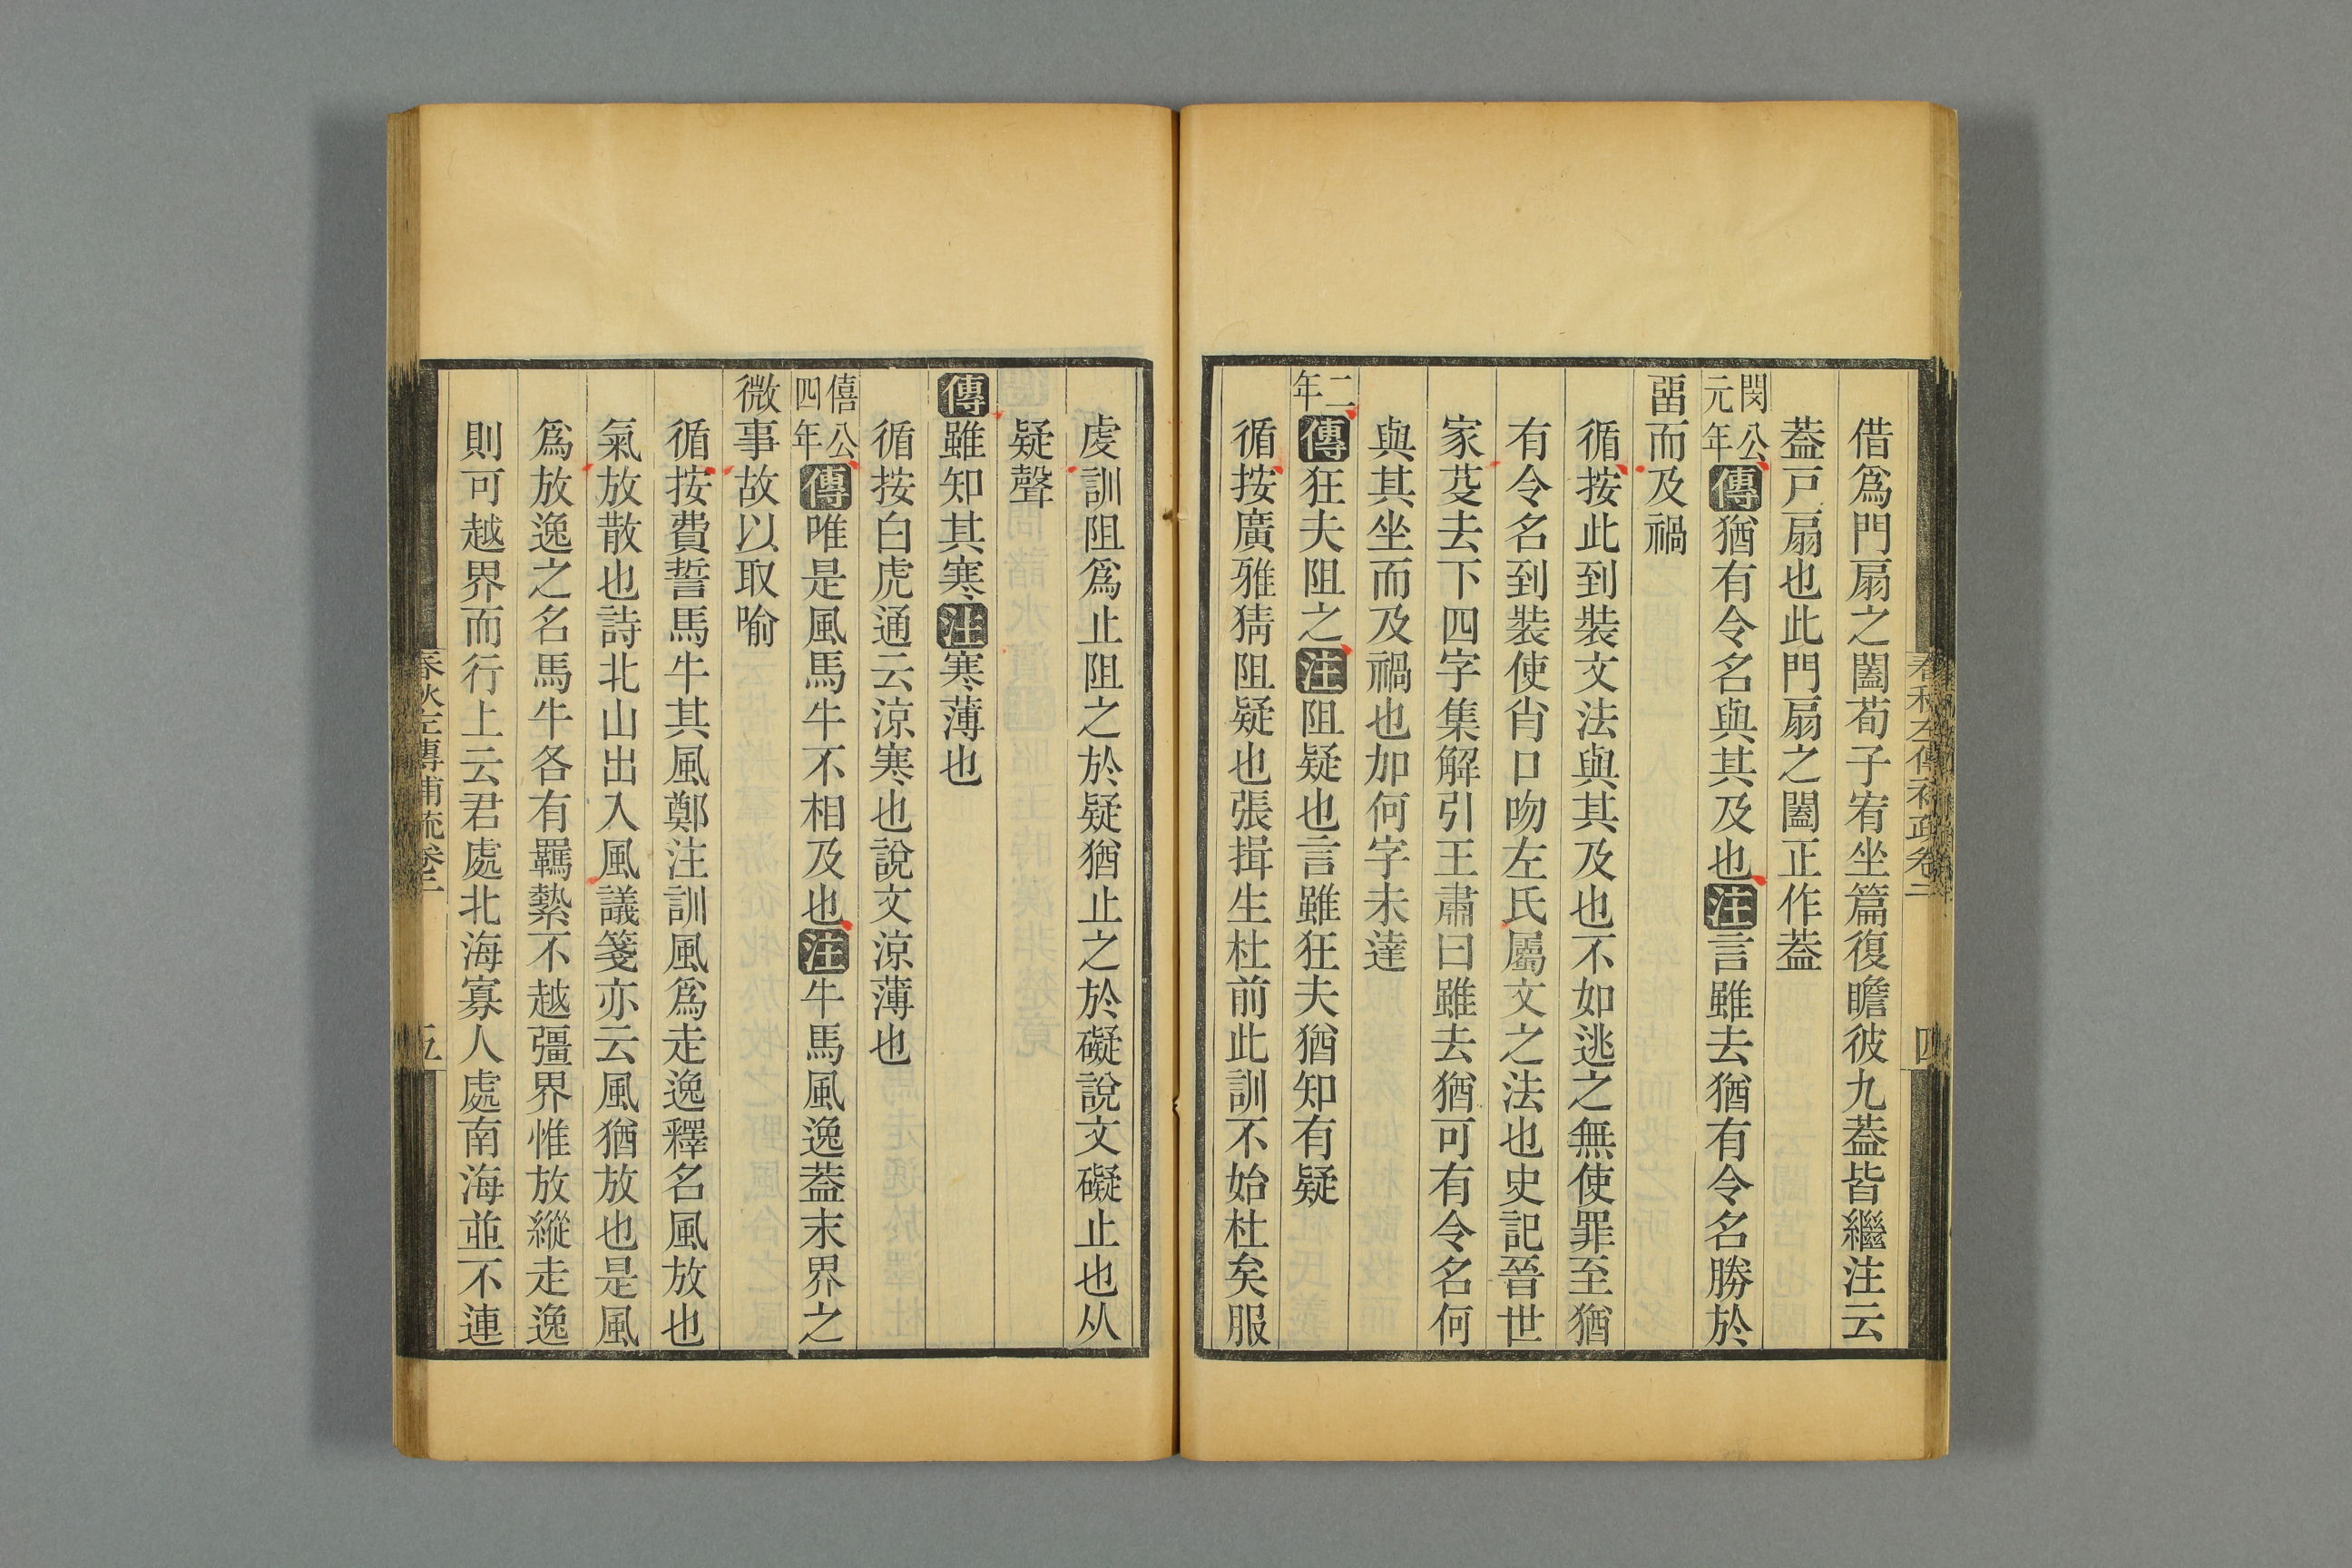 春秋左傳補疏卷二
四
借爲門扇之闔荀子宥坐篇復瞻彼九葢皆繼注云
葢戸扇也此門扇之闔正作葢
閔公元年傳猶有令名與其及也注言雖去猶有令名勝於
畱而及禍
循按此到裝文法與其及也不如逃之無使罪至猶
有令名到裝使肖口吻左氏屬文之法也史記晉世
家芟去下四字集解引王肅曰雖去猶可有令名何
與其坐而及禍也加何字未達
二年傳狂夫阻之注阻疑也言雖狂夫猶知有疑
循按廣雅猜阻疑也張揖生杜前此訓不始杜矣服
虔訓阻爲止阻之於疑猶止之於礙說文礙止也从
疑聲
傳雖知其寒注寒薄也
循按白虎通云涼寒也說文涼薄也
僖公四年傳唯是風馬牛不相及也注牛馬風逸葢末界之
微事故以取喻
循按費誓馬牛其風鄭注訓風爲走逸釋名風放也
氣放散也詩北山出入風議箋亦云風猶放也是風
爲放逸之名馬牛各有羈縶不越彊界惟放縱走逸
則可越界而行上云君處北海寡人處南海並不連
春秋左傳補疏卷二
五